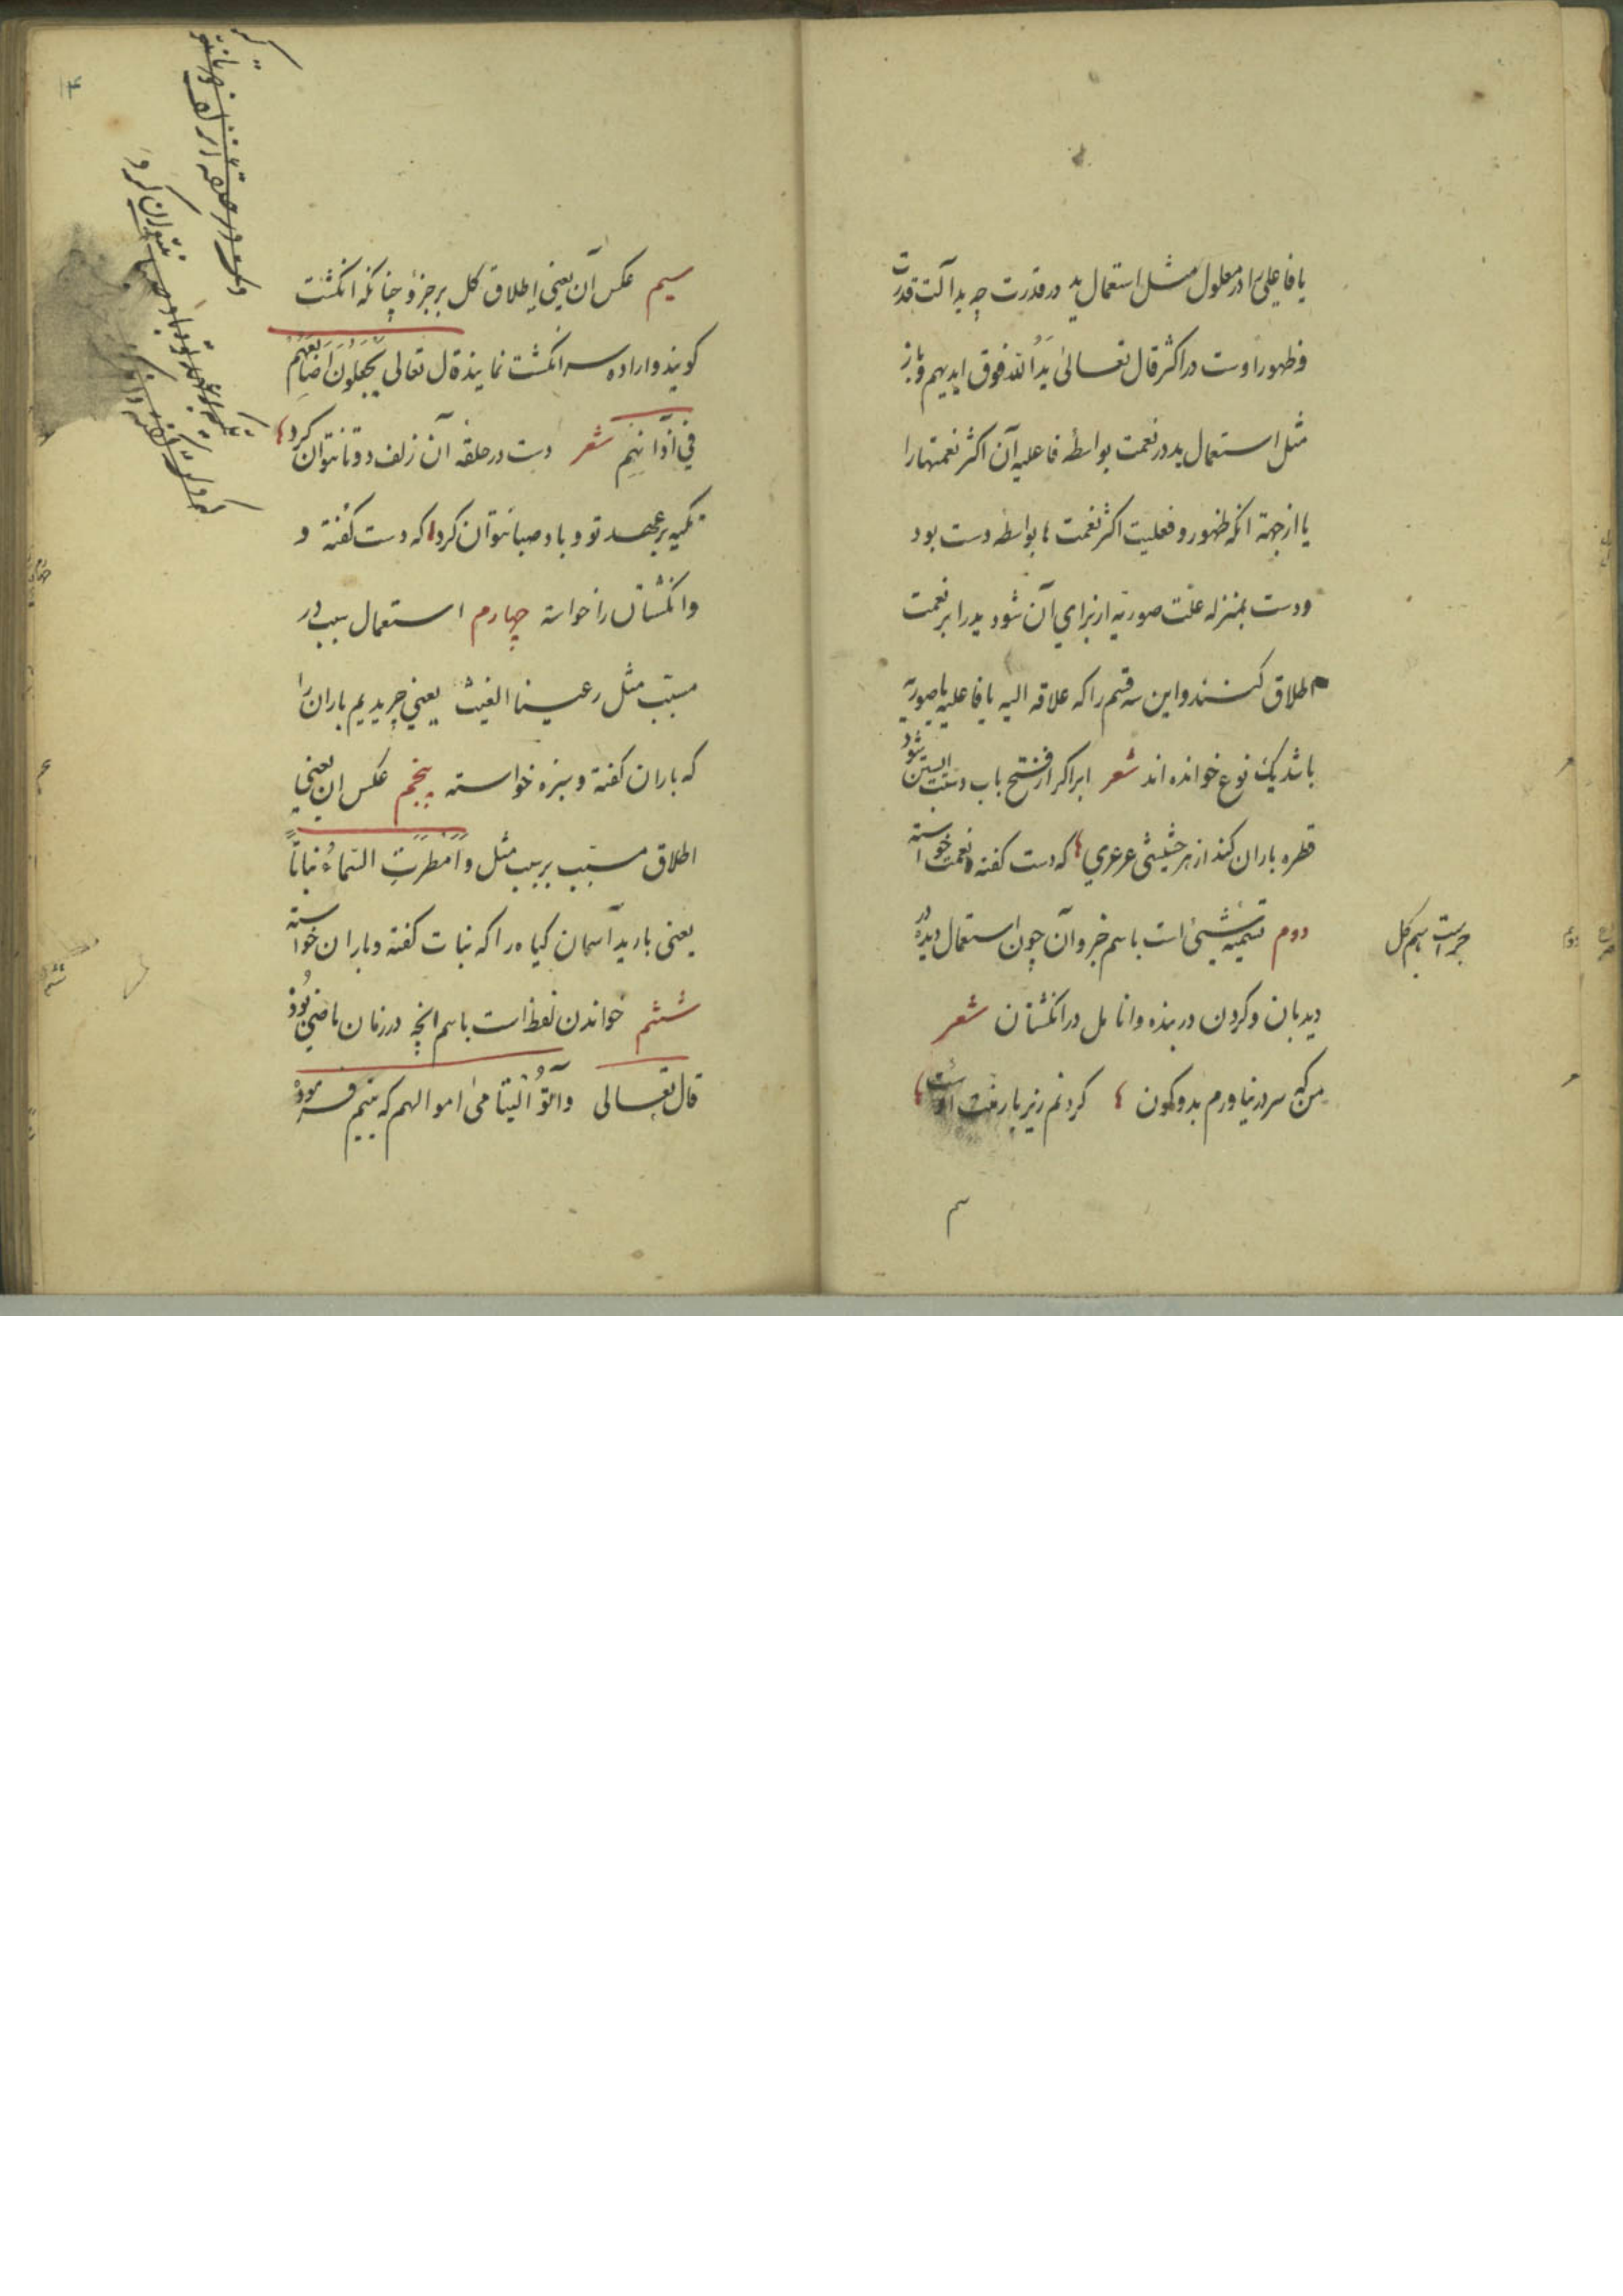 یا فاعلی را در معلول مثل استعمال ید در قدرت چه ید آلت قدرت
و ظهور اوست در اکثر قال تعالی یَدُ الله فوق ایدیهم و باز
مثل استعمال ید در نعمت بواسطهٔ فاعلیه آن اکثر نعمتها را
یا از جهة انکه ظهور و فعلیت اکثر نعمت ها بواسطه دست بود
و دست بمنزله علت صوریه از برای آن شود ید را بر نعمت
اطلاق کنند و این سه قسم را که علاقه الیه یا فاعلیه یا صوریه
باشد یک نوع خوانده اند شعر ابر اکر از فتح باب دستت ابستن شود
قطره باران کند از هر حشیشی عرعری که دست کفته و نعمت خواسته
دوم تسمیه شیئ است باسم جزو آن چون استعمال دیده در
دیدبان و کردن در بنده و انامل در انکشتان شعر
من که سر در نیاورم بدو کون کردنم زیر بار منت اوست
جزء است باسم کل
سیم عکس آن یعنی اطلاق کل بر جزؤ چنانکه انکشت
کویند و اراده سر انکشت نمایند قال تعالی یَجْعَلُونَ اَصَابِعَهُمْ
فِي آذَانِهِمْ شعر دست در حلقه آن زلف دوتا نتوان کرد
تکیه بر عهد تو و باد صبا نتوان کرد که دست کفته و
و انکشتان را خواسته چهارم استعمال سبب در
مسبّب مثل رعینا الغیث یعنی چریدیم باران را
که باران کفته و سبزه خواسته پنجم عکس ان یعنی
اطلاق مسبّب بر سبب مثل و اَمْطَرَتِ السّماءُ نباتاً
یعنی بارید آسمان کیاه را که نبات کفته و باران خواسته
ششم خواندن لفظ است باسم انچه در زمان ماضی بُود
قال تعالی وآتُوا الْیتامیٰ اموالهم که یتیم فرموده